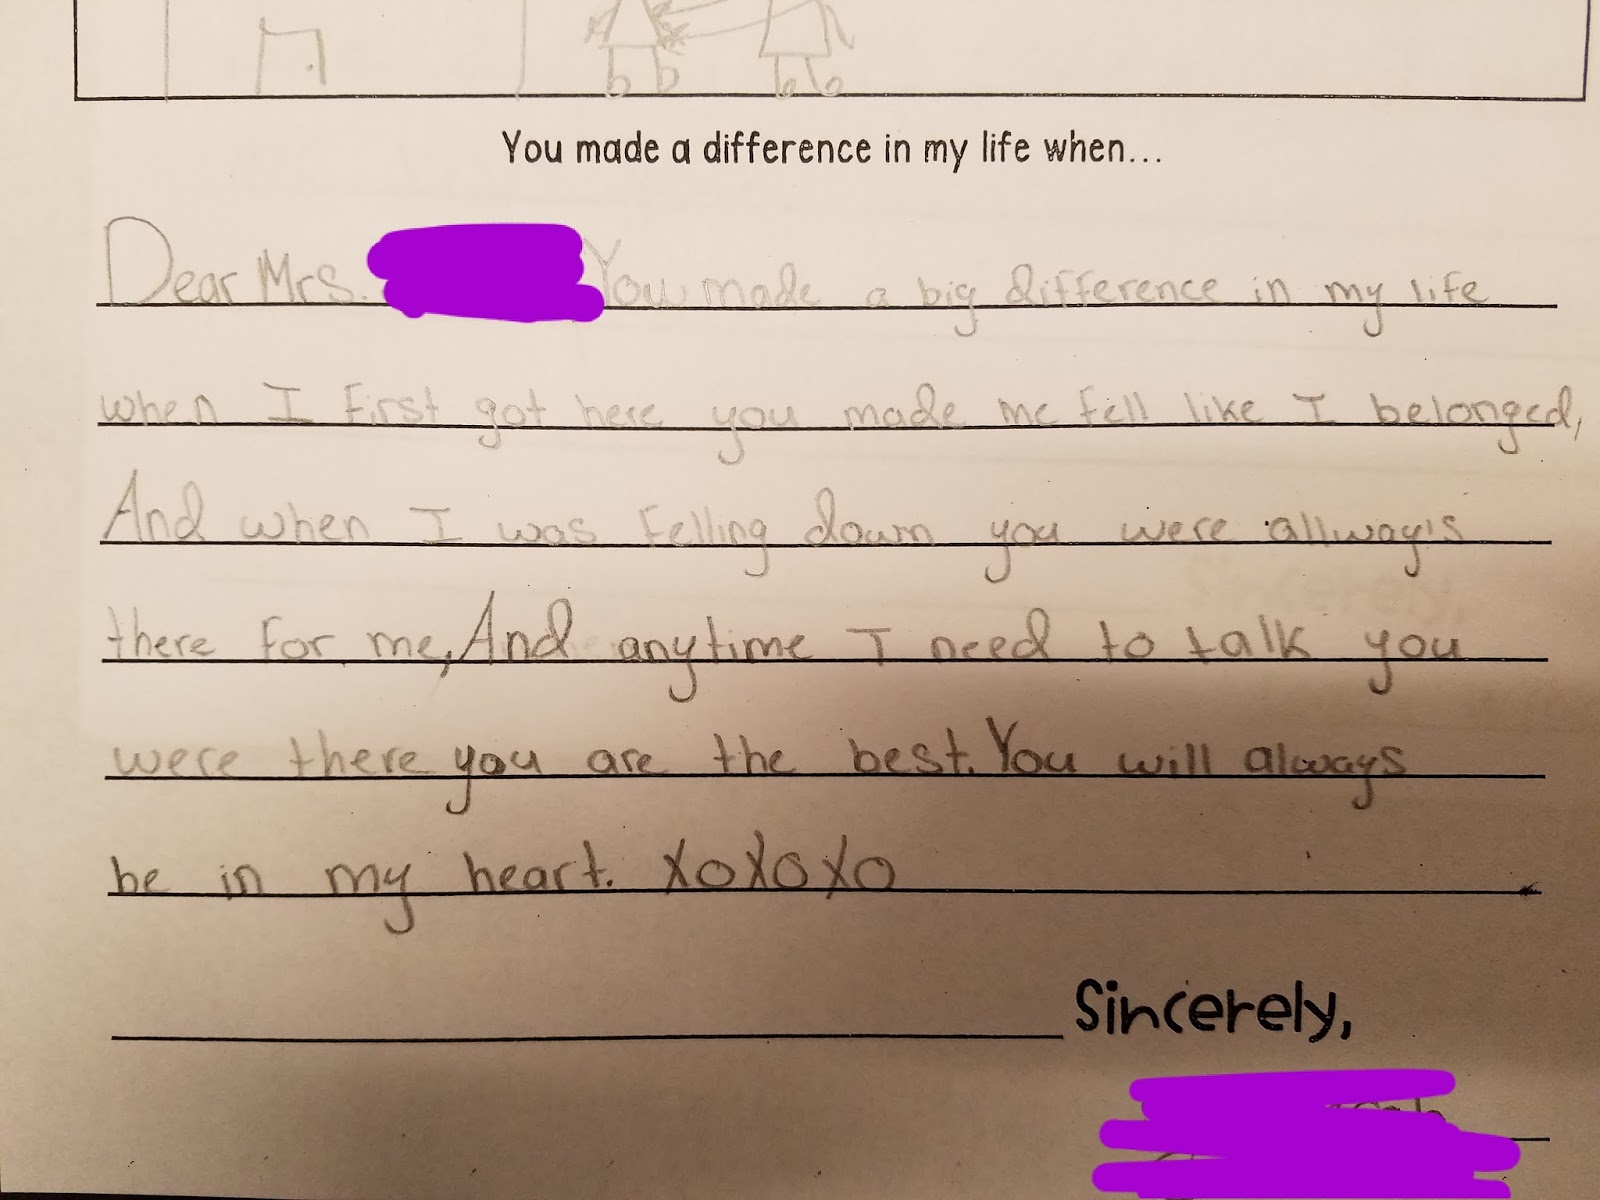 You made a difference in my life when...
Dear Mrs. You made a big difference in my life
when I first got here you made me fell like I belonged,
And when I was felling down you were allway's
there for me, And anytime I need to talk you
were there you are the best. You will always
be in my heart. XOXOXO
Sincerely,